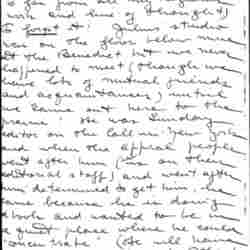 so far from all my
work and line of thought)
to forget it. Julius' studio
was on the floor below mine
at the Benedict but we never
happened to meet (though we
have lots of mutual friends
and acquaintances) until
we came out here to the
. He was Sunday
editor on the Call in New York
and when the appeal people
went after him (is on their
editorial staff) and went after
him determined to get him. he
came because he is doing
books and wanted to be in
a quiet place where he could
concentrate. (He